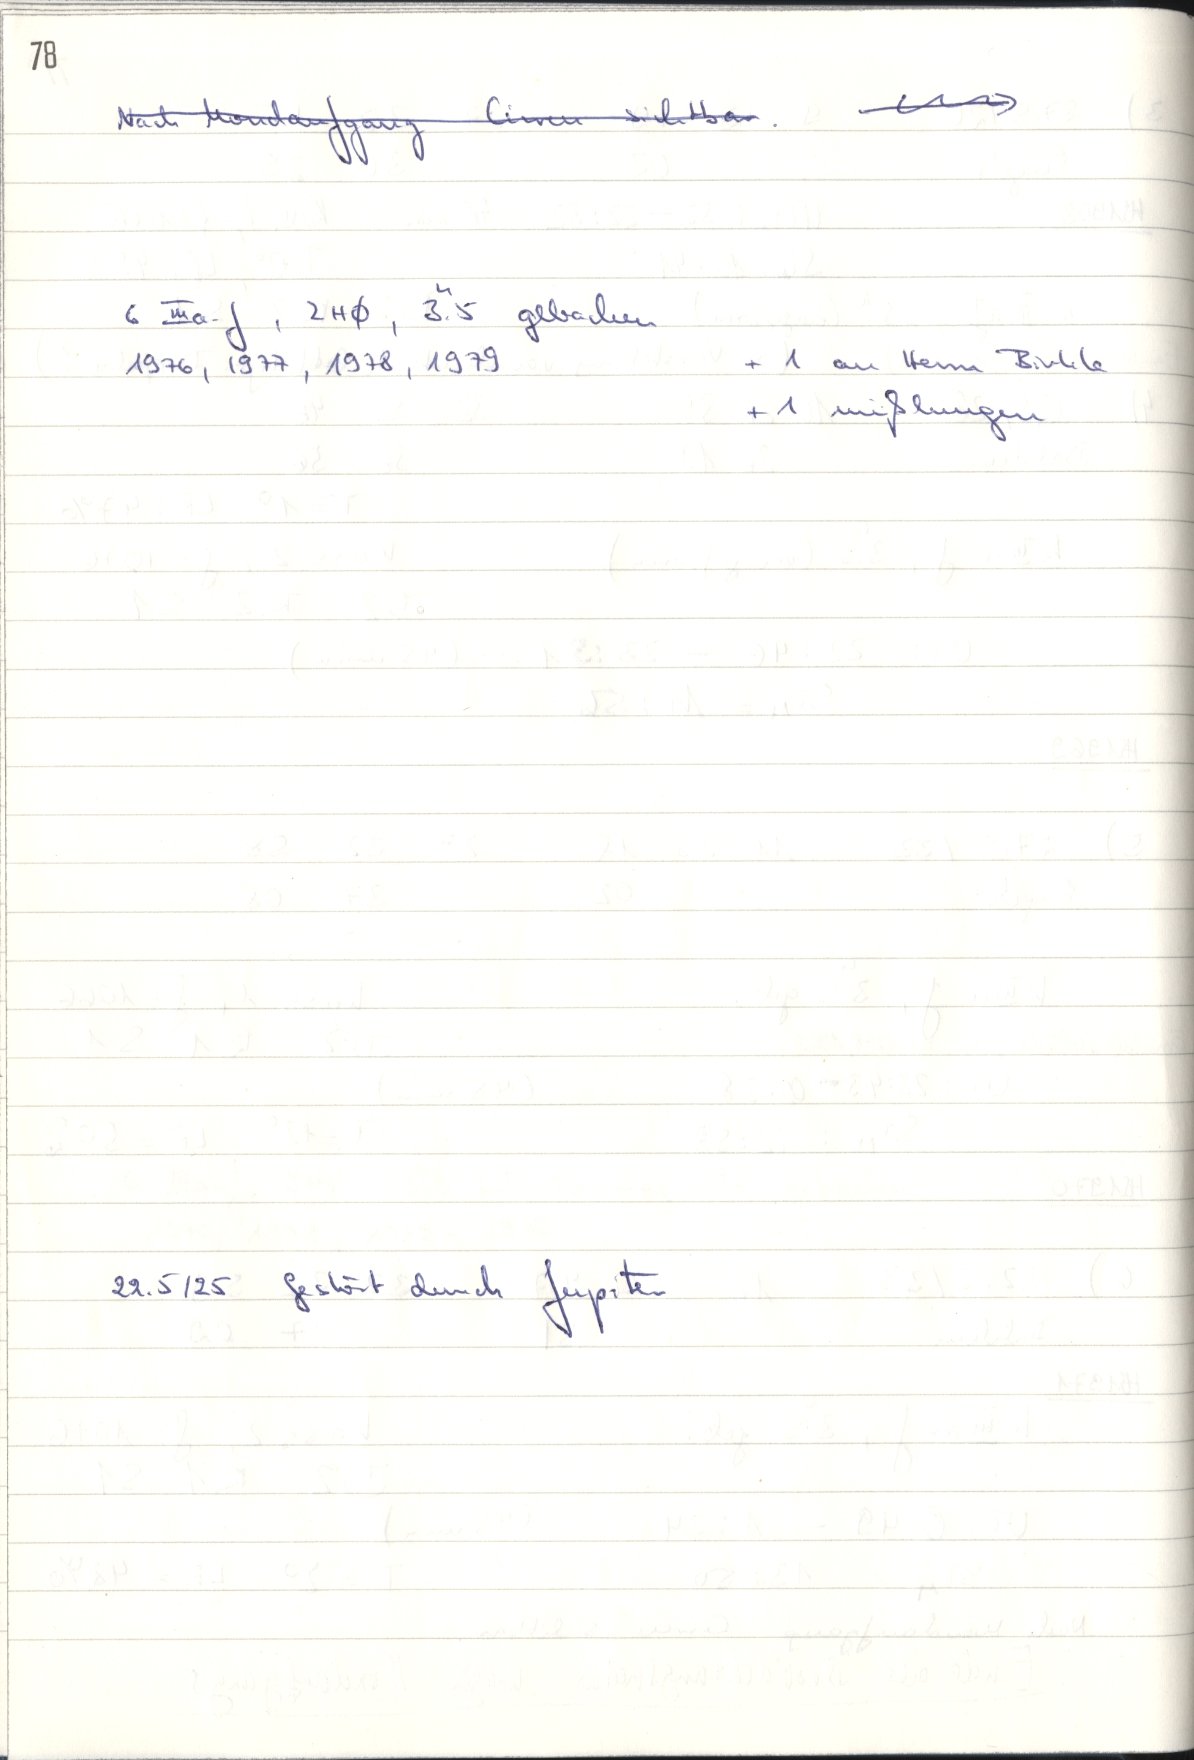 78
Nach Mondaufgang Cirren sichtbar.
6 IIIa-J, 2HΦ, 3.5 gebacken
1976, 1977, 1978, 1979 + 1 an Herrn Birkle
+ 1 mißlungen
22.5/25 Gestört durch Jupiter